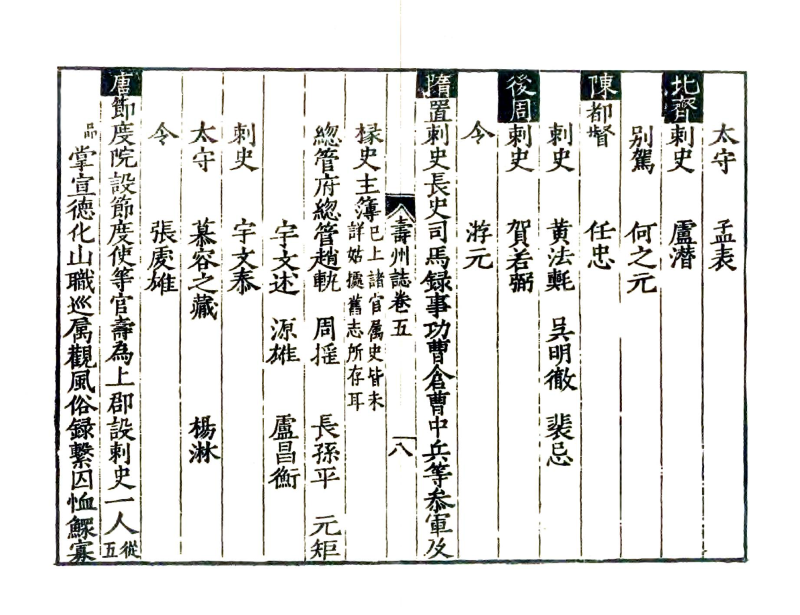 太守 孟表
北齊刺史 盧潛
别駕 何之元
陳都督 任忠
刺史 黄法𣰰 吳明徹 裴忌
後周刺史 賀若弼
令 游元
隋置刺史長史司馬録事功曹倉曹中兵等叅軍及
壽州誌卷五 八
椽史主簿已上諸官属史皆未詳姑擄舊志所存耳
總管府總管趙軌 周摇 長孫平 元矩
宇文述 源雄 盧昌衡
刺史 宇文泰
太守 慕容之藏 楊淋
令 張䖏雄
唐節度院設節度使等官壽為上郡設刺史一人從五
品掌宣德化山職巡属觀風俗録繫囚恤鰥寡